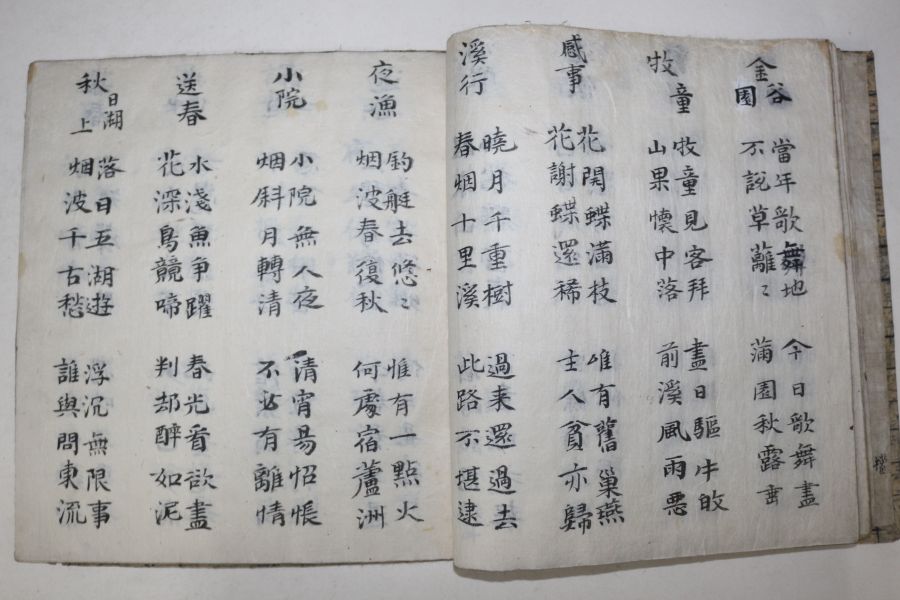 金谷園
當年歌舞地
不說草離〻
今日歌舞盡
蒲園秋露垂
牧童
牧童見客拜
山果懷中落
盡日驅牛敀
前溪風雨惡
感事
花開蝶滿枝
花謝蝶還稀
唯有舊巢燕
主人貧亦歸
溪行
曉月千重樹
春烟十里溪
過来還過去
此路不堪逮
夜漁
釣艇去悠〻
烟波春復秋
惟有一點火
何處宿蘆洲
小院
小院無人夜
烟斜月轉清
清宵易怊悵
不必有離情
送春
水淺魚争躍
花深鳥競啼
春光看欲盡
判却醉如泥
秋日湖上
落日五湖遊
烟波千古愁
浮沉無限事
誰與問東流